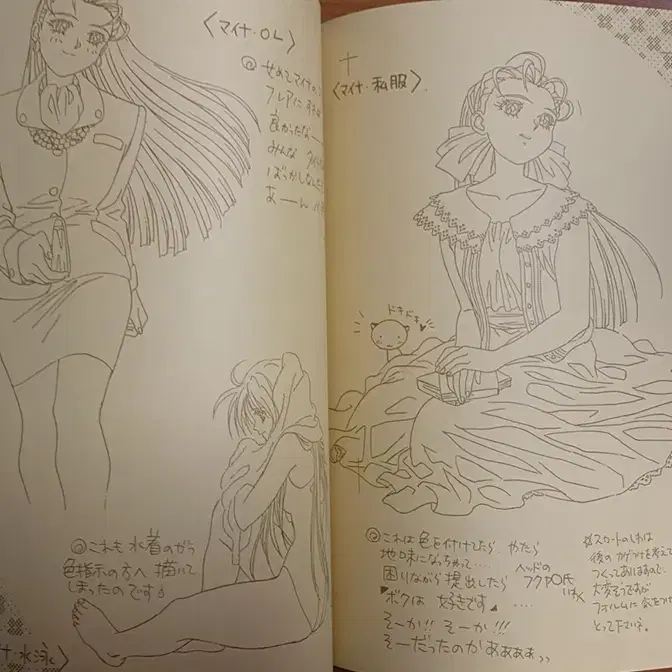 〈マイナ・OL〉
せめてマイナの
フレアにすれば
良かったなー
みんな タイト
ばっかしなんだ
あーん
これも 水着のがっ
色指示の方へ 描いて
しまったのです
水泳〉
〈マイナ・私服〉
ドキドキ
これは 色を付けてたら やたら
地味になっちゃって‥‥
困りながら 提出したら ヘッドの
フクヤPO氏
いわく
ボクは 好きです ‥‥
そーか!! そーか!!!
そーだったのかぁぁぁぁっ
スカートのしわは
後の カゲつけを考えて
つくってありますので、
大変そうですが
フォルムに 気をつけ
とって下さいネ。